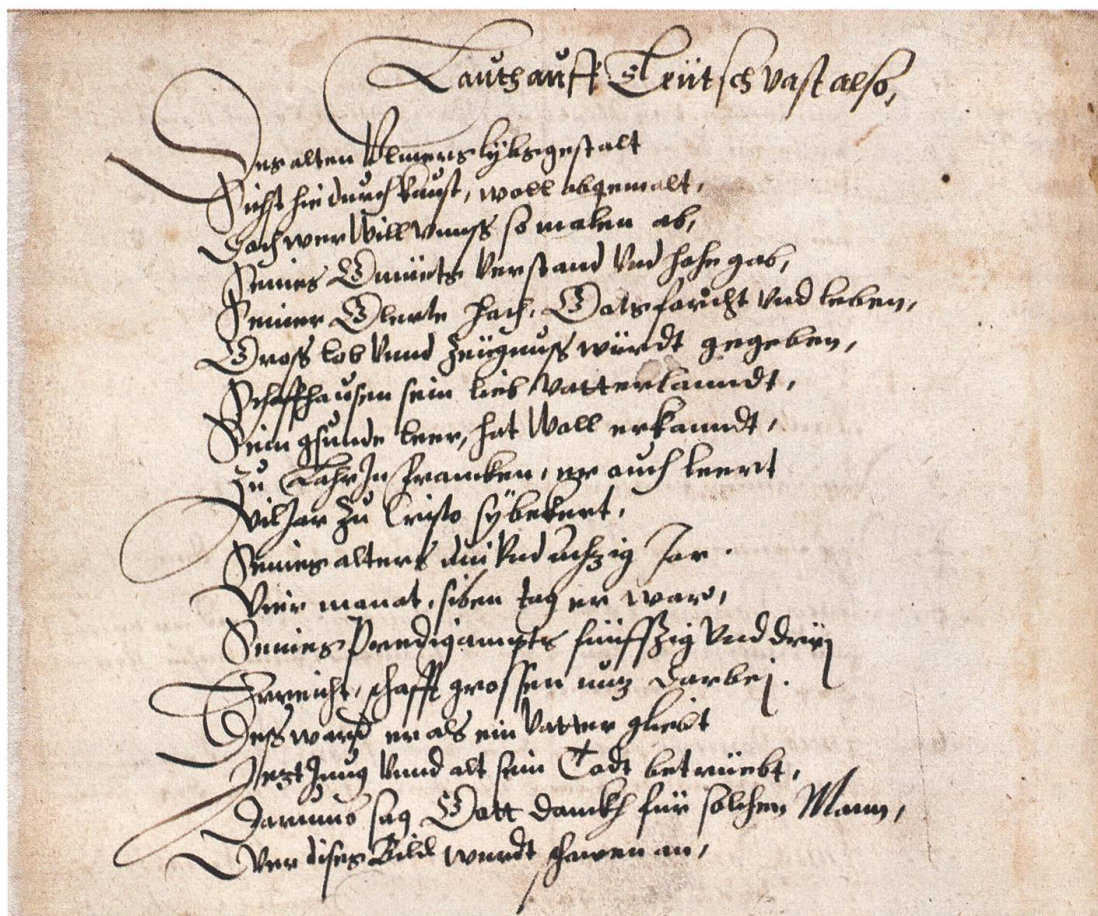 Lauth auff Teütsch vast also,
Des alten Ulmers lybsgestalt
Sichst hie durch kunst, woll abgemalt,
Doch wer will unnss so malen ab,
Seines Gmüets verstand und hohe gab,
Seiner Glerte hoch, Gotsforcht und leben,
Gross lob unnd zeügnuss würdt gegeben,
Schaffhausen sein lieb vatterlanndt,
Sein gsunde leer, hat woll erkanndt,
Zu Lahr In francken, er auch leert
Vil Jar zu Cristo sy bekert,
Seines alters und achzig Jar
Vier monat, siben tag er war,
Seines Predigampts fünffzig und drÿ
Erreicht, schafft grossen nutz darbei.
Dess ward er als ein Vatter gliebt
Jezt Jung unnd alt sein Todt betrüebt,
Darumb sag Gott dankh für solchen Mann,
Wer dises Bild wurdt schawen an,